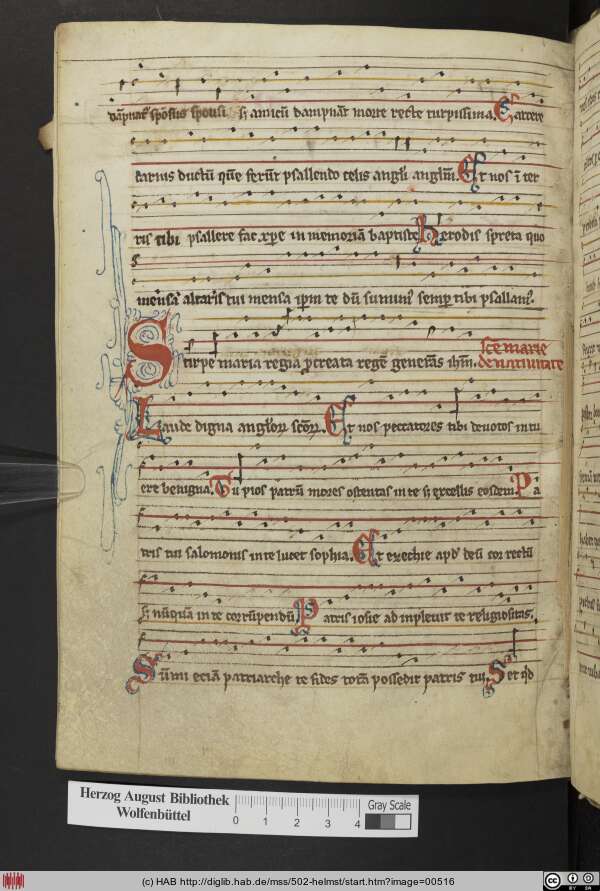 dāpnat᷒ spōsus sponsi. sꝫ amicū dampnāt morte recte turpissima. Carcere
tarius ductū que ferūt psallendo celis angli anglm̄. Et nos ī ter
ris tibi psallere fac xp̄e in memoriā baptiste Herodis spreta quo
mensa altaris tui mensa ip̄m te dū sumim᷒ semp tibi psallam᷒.
Stirpe maria regia pcreata regē generās ihm̄. sc̄e marie
de nativitate
Laude digna anglorꝝ sc̄orꝝ. Et nos peccatores tibi devotos intu
ere benigna. Tu pios patrū mores ostentas in te sꝫ excellis eosdem. Pa
tris tui salomonis in te lucet sophia. Et ezechie apd᷒ deū cor rectū
sꝫ nūquā in te corrūpendū. Patris iosie adinplevit te religiositas.
Summi eciā patriarche te fides totā possedit patris tui. Set qd
Herzog August Bibliothek
Wolfenbüttel
0 1 2 3 4
Gray Scale
(c) HAB http://diglib.hab.de/mss/502-helmst/start.htm?image=00516
cc BY SA